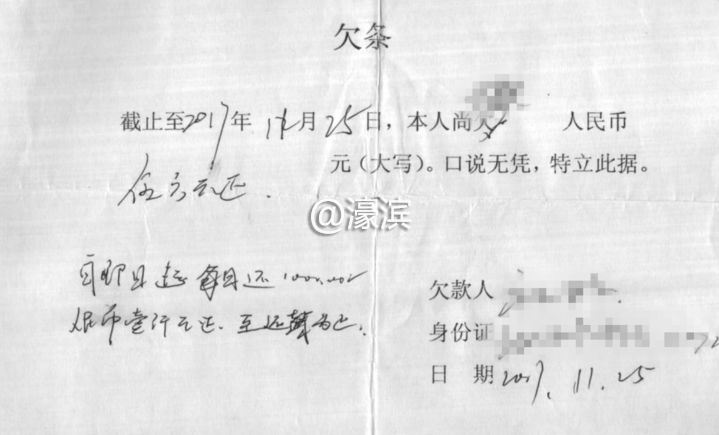 欠条
截止至2017年 月25日，本人尚欠 人民币
伍万元正. 元（大写）。口说无凭，特立此据。
@濠滨
自即日起 每月还
人民币壹仟元正. 至还 为止.
欠款人
身份证
日 期2017. 11. 25